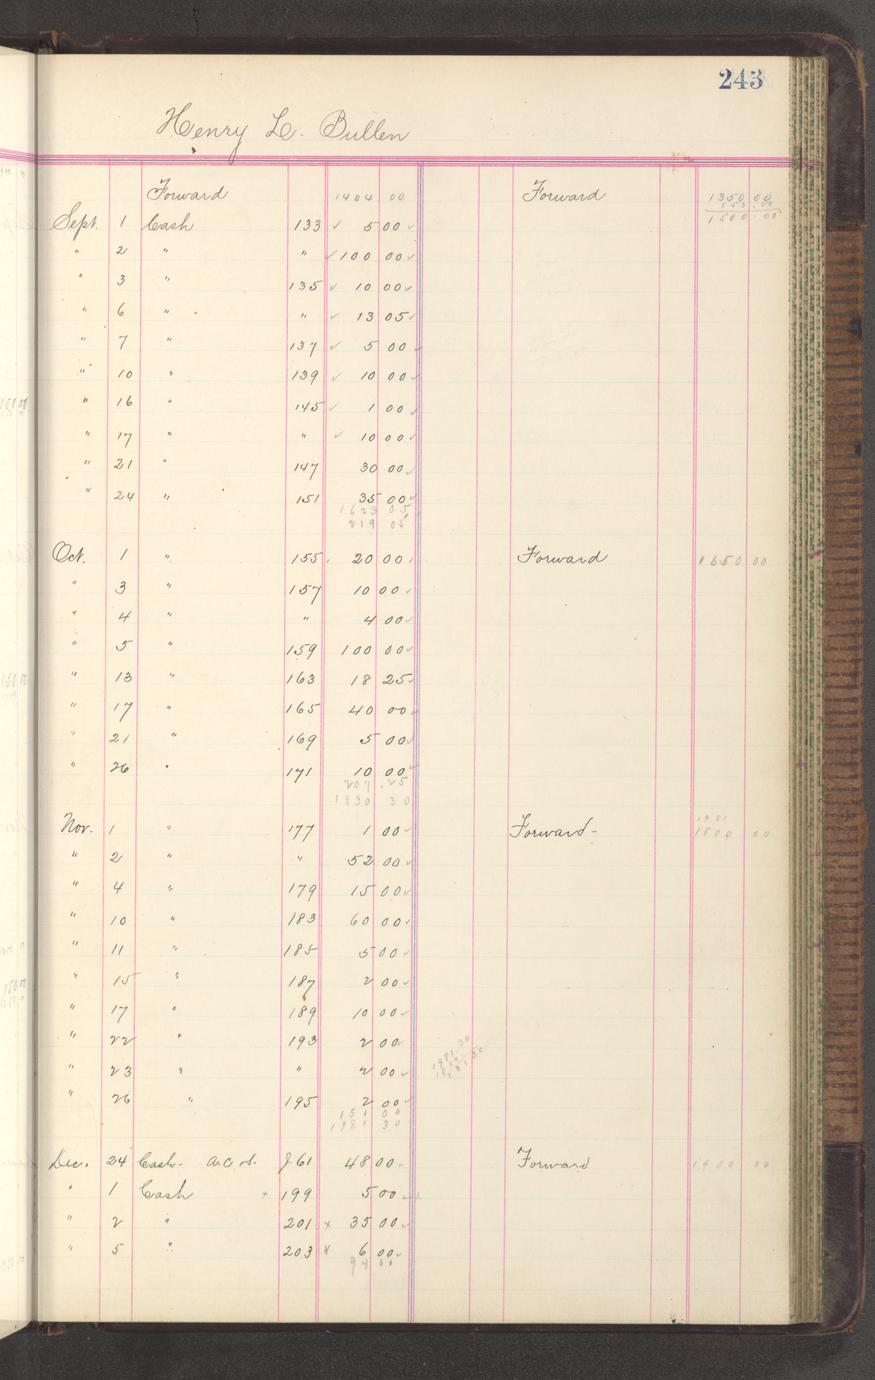 243
Henry L. Bullen
Forward 1404 00 Forward 1350 00
150 00
1500 00
Sept. 1 Cash 133 ✓ 5 00 ✓
" 2 " " ✓ 100 00 ✓
" 3 " 135 ✓ 10 00 ✓
" 6 " " ✓ 13 05 ✓
" 7 " 137 ✓ 5 00 ✓
" 10 " 139 ✓ 10 00 ✓
" 16 " 145 ✓ 1 00 ✓
" 17 " " ✓ 10 00 ✓
" 21 " 147 30 00 ✓
" 24 " 151 35 00 ✓
1623 05
219 05
Oct. 1 " 155 20 00 Forward 1650 00
" 3 " 157 10 00 ✓
" 4 " " 4 00 ✓
" 5 " 159 100 00 ✓
" 13 " 163 18 25 ✓
" 17 " 165 40 00 ✓
" 21 " 169 5 00 ✓
" 26 " 171 10 00 ✓
207 25
1830 30
1981
Nov. 1 " 177 1 00 ✓ Forward - 1800 00
" 2 " " 52 00 ✓
" 4 " 179 15 00 ✓
" 10 " 183 60 00 ✓
" 11 " 185 5 00 ✓
" 15 " 187 2 00 ✓
" 17 " 189 10 00 ✓
" 22 " 193 2 00
" 23 " " 2 00 ✓
" 26 " 195 2 00 ✓
151 00
1981 30
Dec. 24 Cash - J.61 48 00 Forward 1900 00
" 1 Cash x 199 5 00
" 2 " 201 x 35 00 ✓
" 5 " 203 x 6 00 ✓
94 00